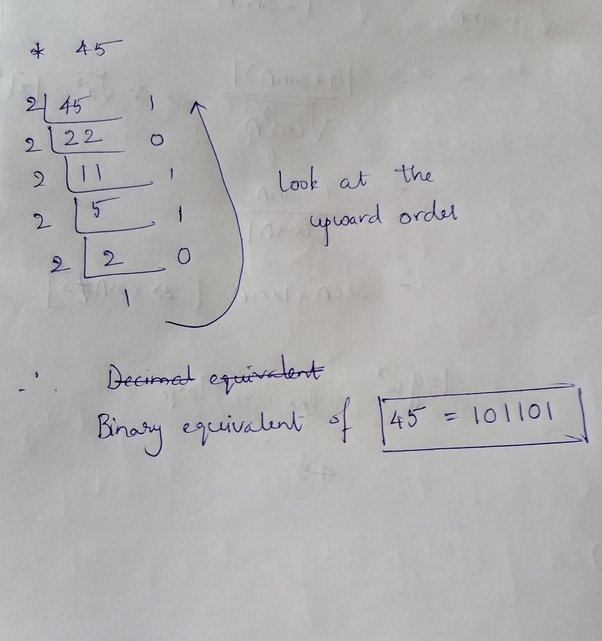 * 45
2 45 1
2 22 0
2 11 1
2 5 1
2 2 0
1
Look at the
upward order
∴ Decimal equivalent
Binary equivalent of 45 = 101101